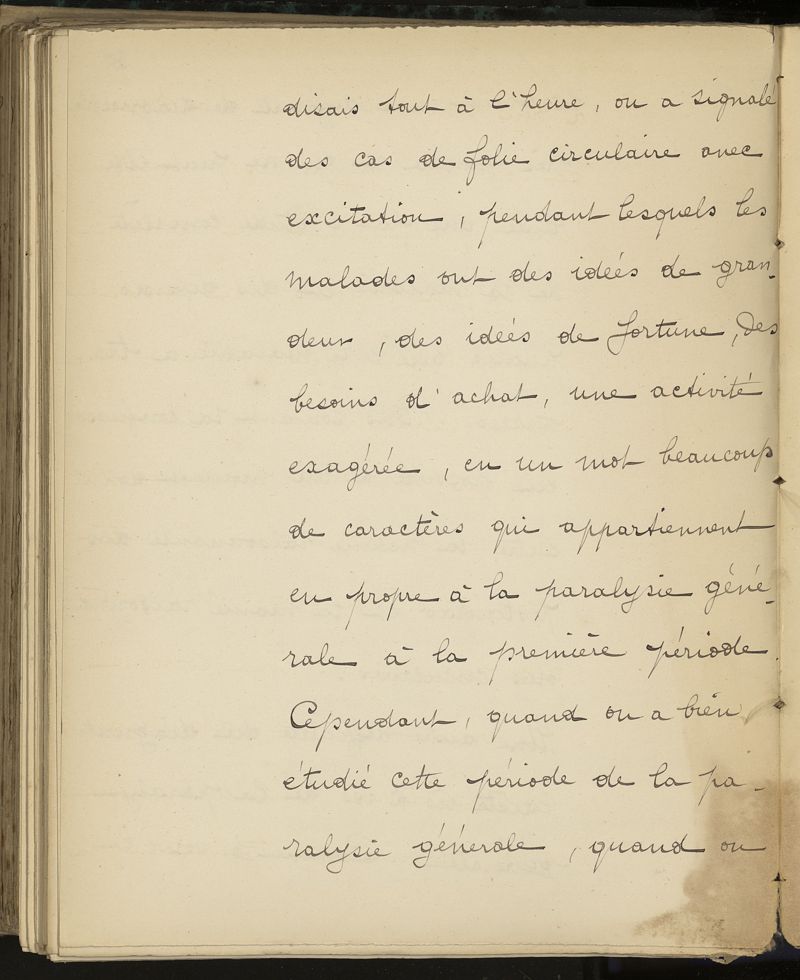 disais tout à l'heure, on a signalé
des cas de folie circulaire avec
excitation, pendant lesquels les
malades ont des idées de gran-
deur, des idées de fortune, des
besoins d'achat, une activité
exagérée, en un mot beaucoup
de caractères qui appartiennent
en propre à la paralysie géné-
rale à la première période.
Cependant, quand on a bien
étudié cette période de la pa-
ralysie générale, quand on